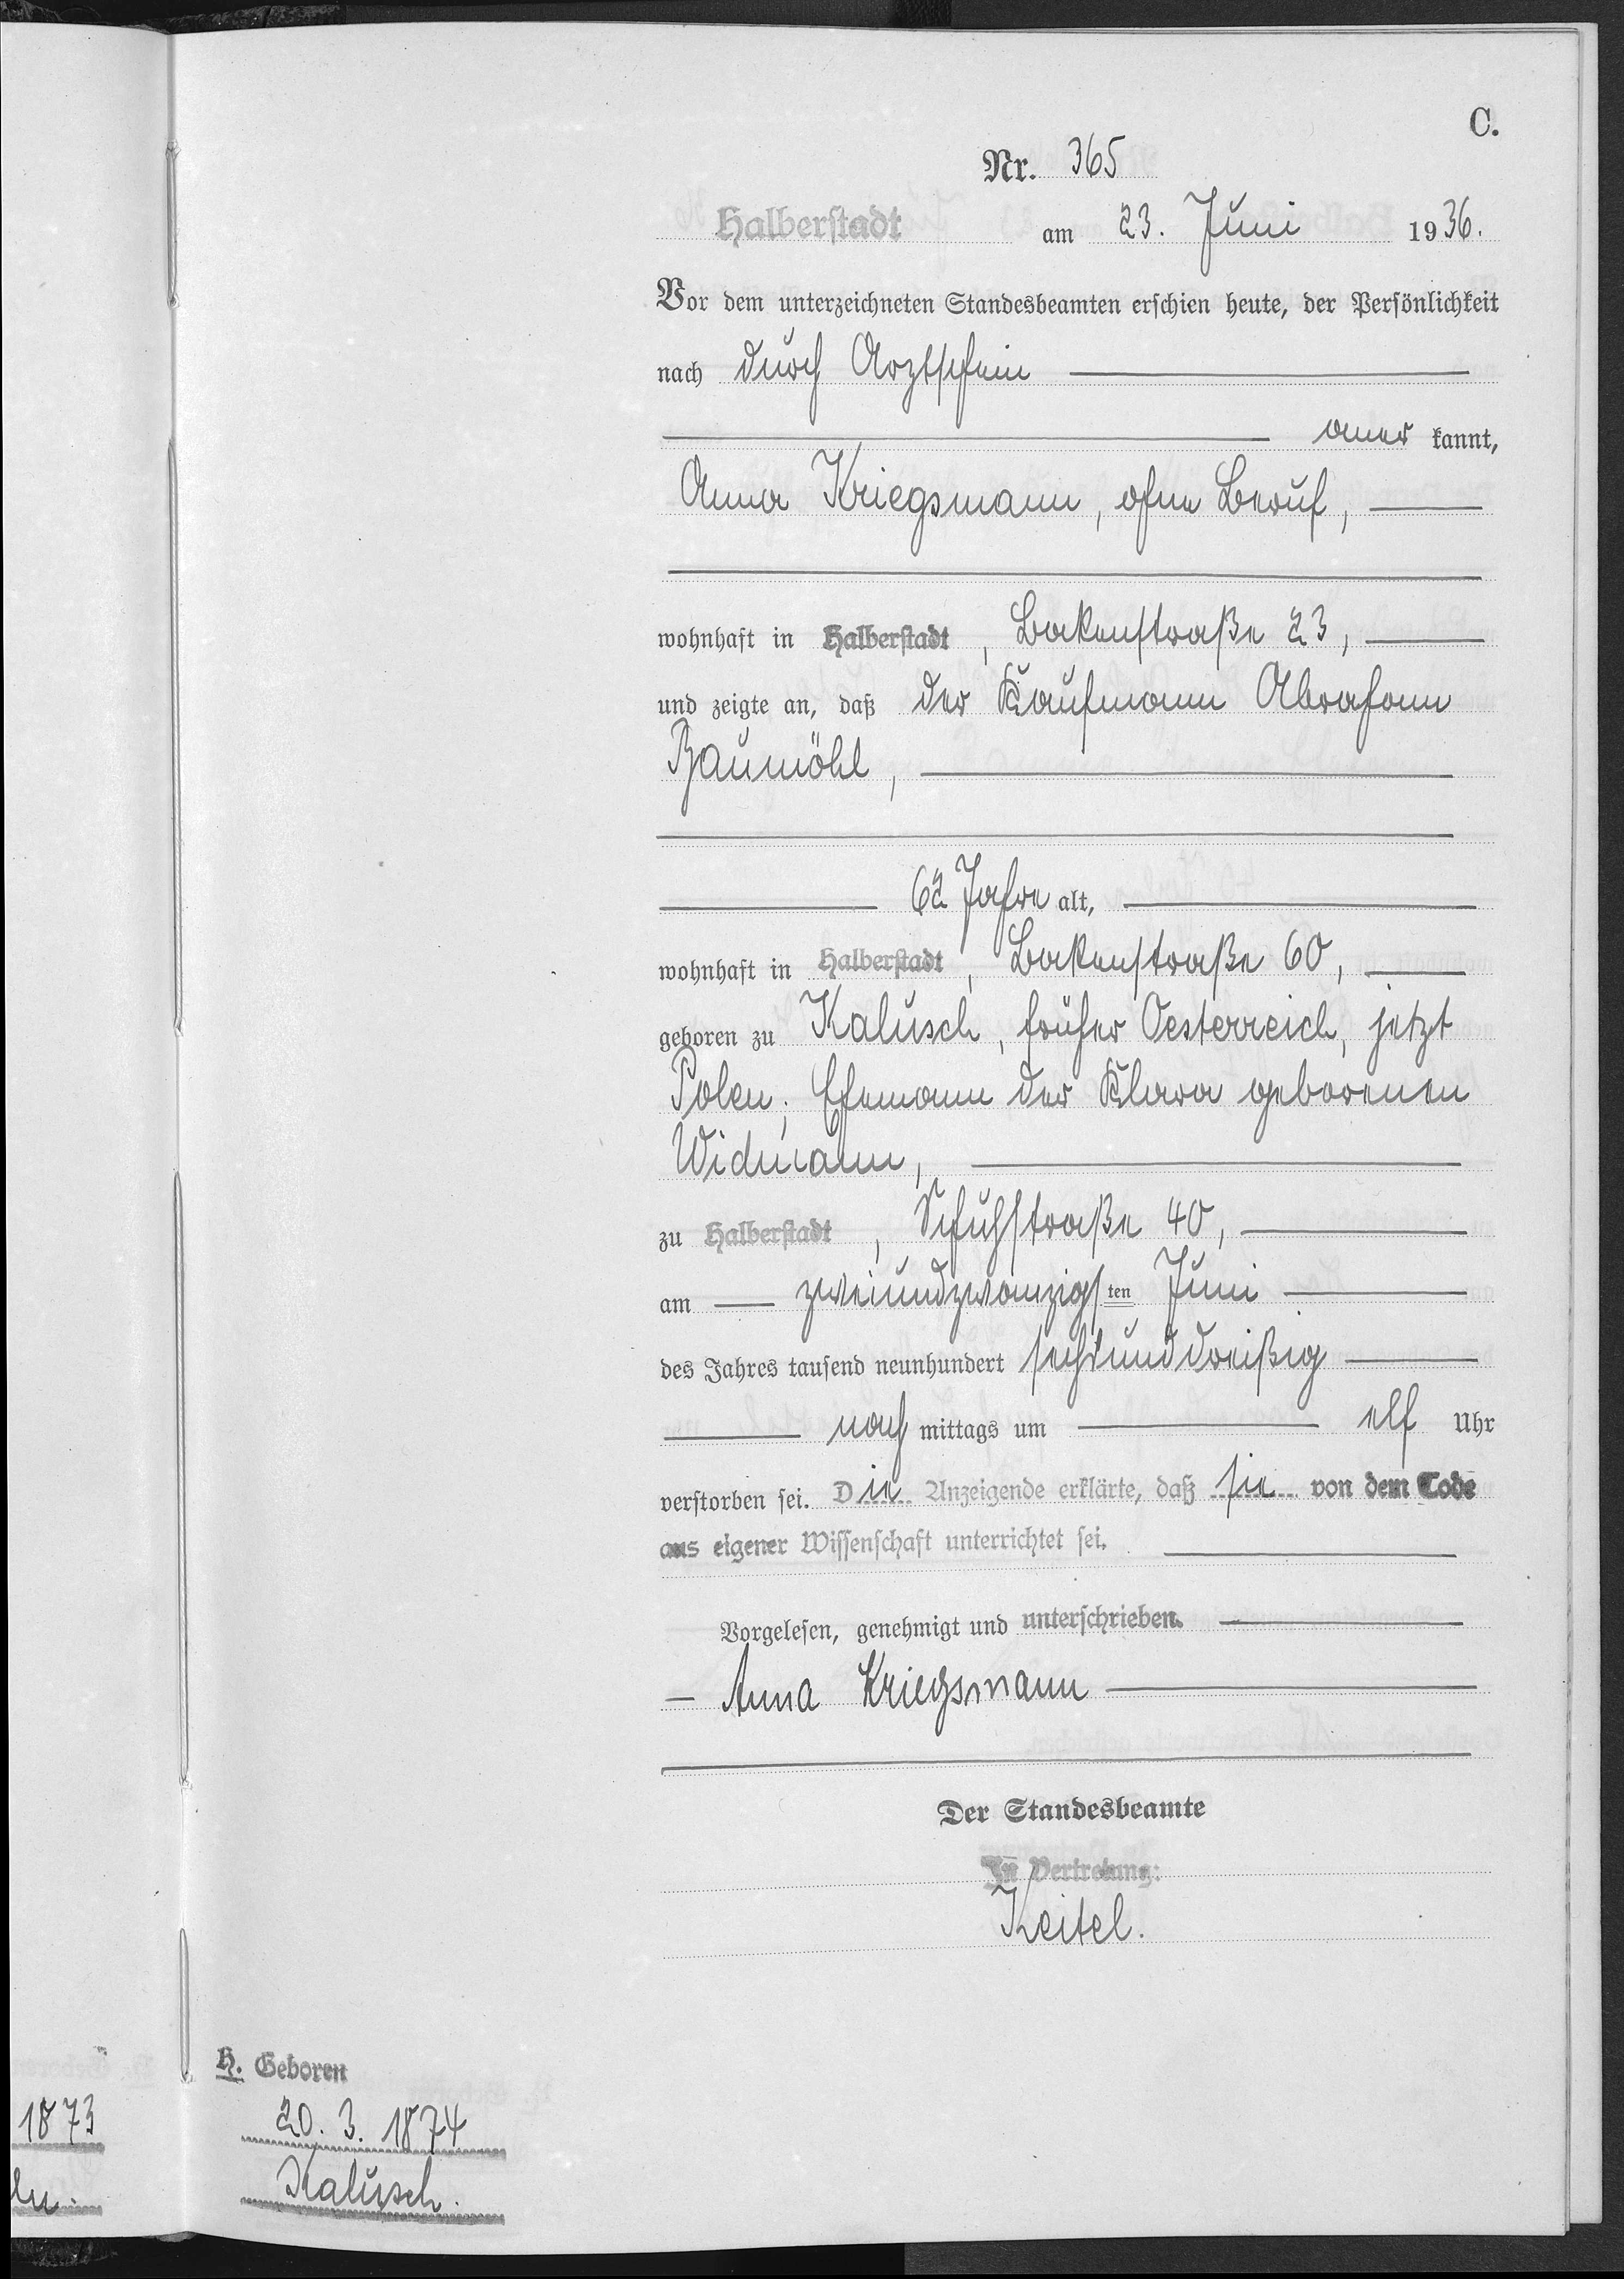 C.
Nr. 365
Halberstadt am 23. Juni 1936.
Vor dem unterzeichneten Standesbeamten erschien heute, der Persönlichkeit
nach durch Arztschein
aner kannt,
Anna Kriegsmann, ohne Beruf,
wohnhaft in Halberstadt, Bakenstraße 23,
und zeigte an, daß der Kaufmann Abraham
Baumöhl,
62 Jahre alt,
wohnhaft in Halberstadt, Bakenstraße 60,
geboren zu Kalusch, früher Oesterreich, jetzt
Polen; Ehemann der Klara geborenen
Widmann,
zu Halberstadt, Schuhstraße 40,
am zweiundzwanzigsten Juni
des Jahres tausend neunhundert sechsunddreißig
nach mittags um elf Uhr
verstorben sei. Die Anzeigende erklärte, daß sie von dem Tode
aus eigener Wissenschaft unterrichtet sei.
Vorgelesen, genehmigt und unterschrieben.
Anna Kriegsmann
Der Standesbeamte
In Vertretung:
Keitel.
H. Geboren
20. 3. 1874
Kalusch.
1873